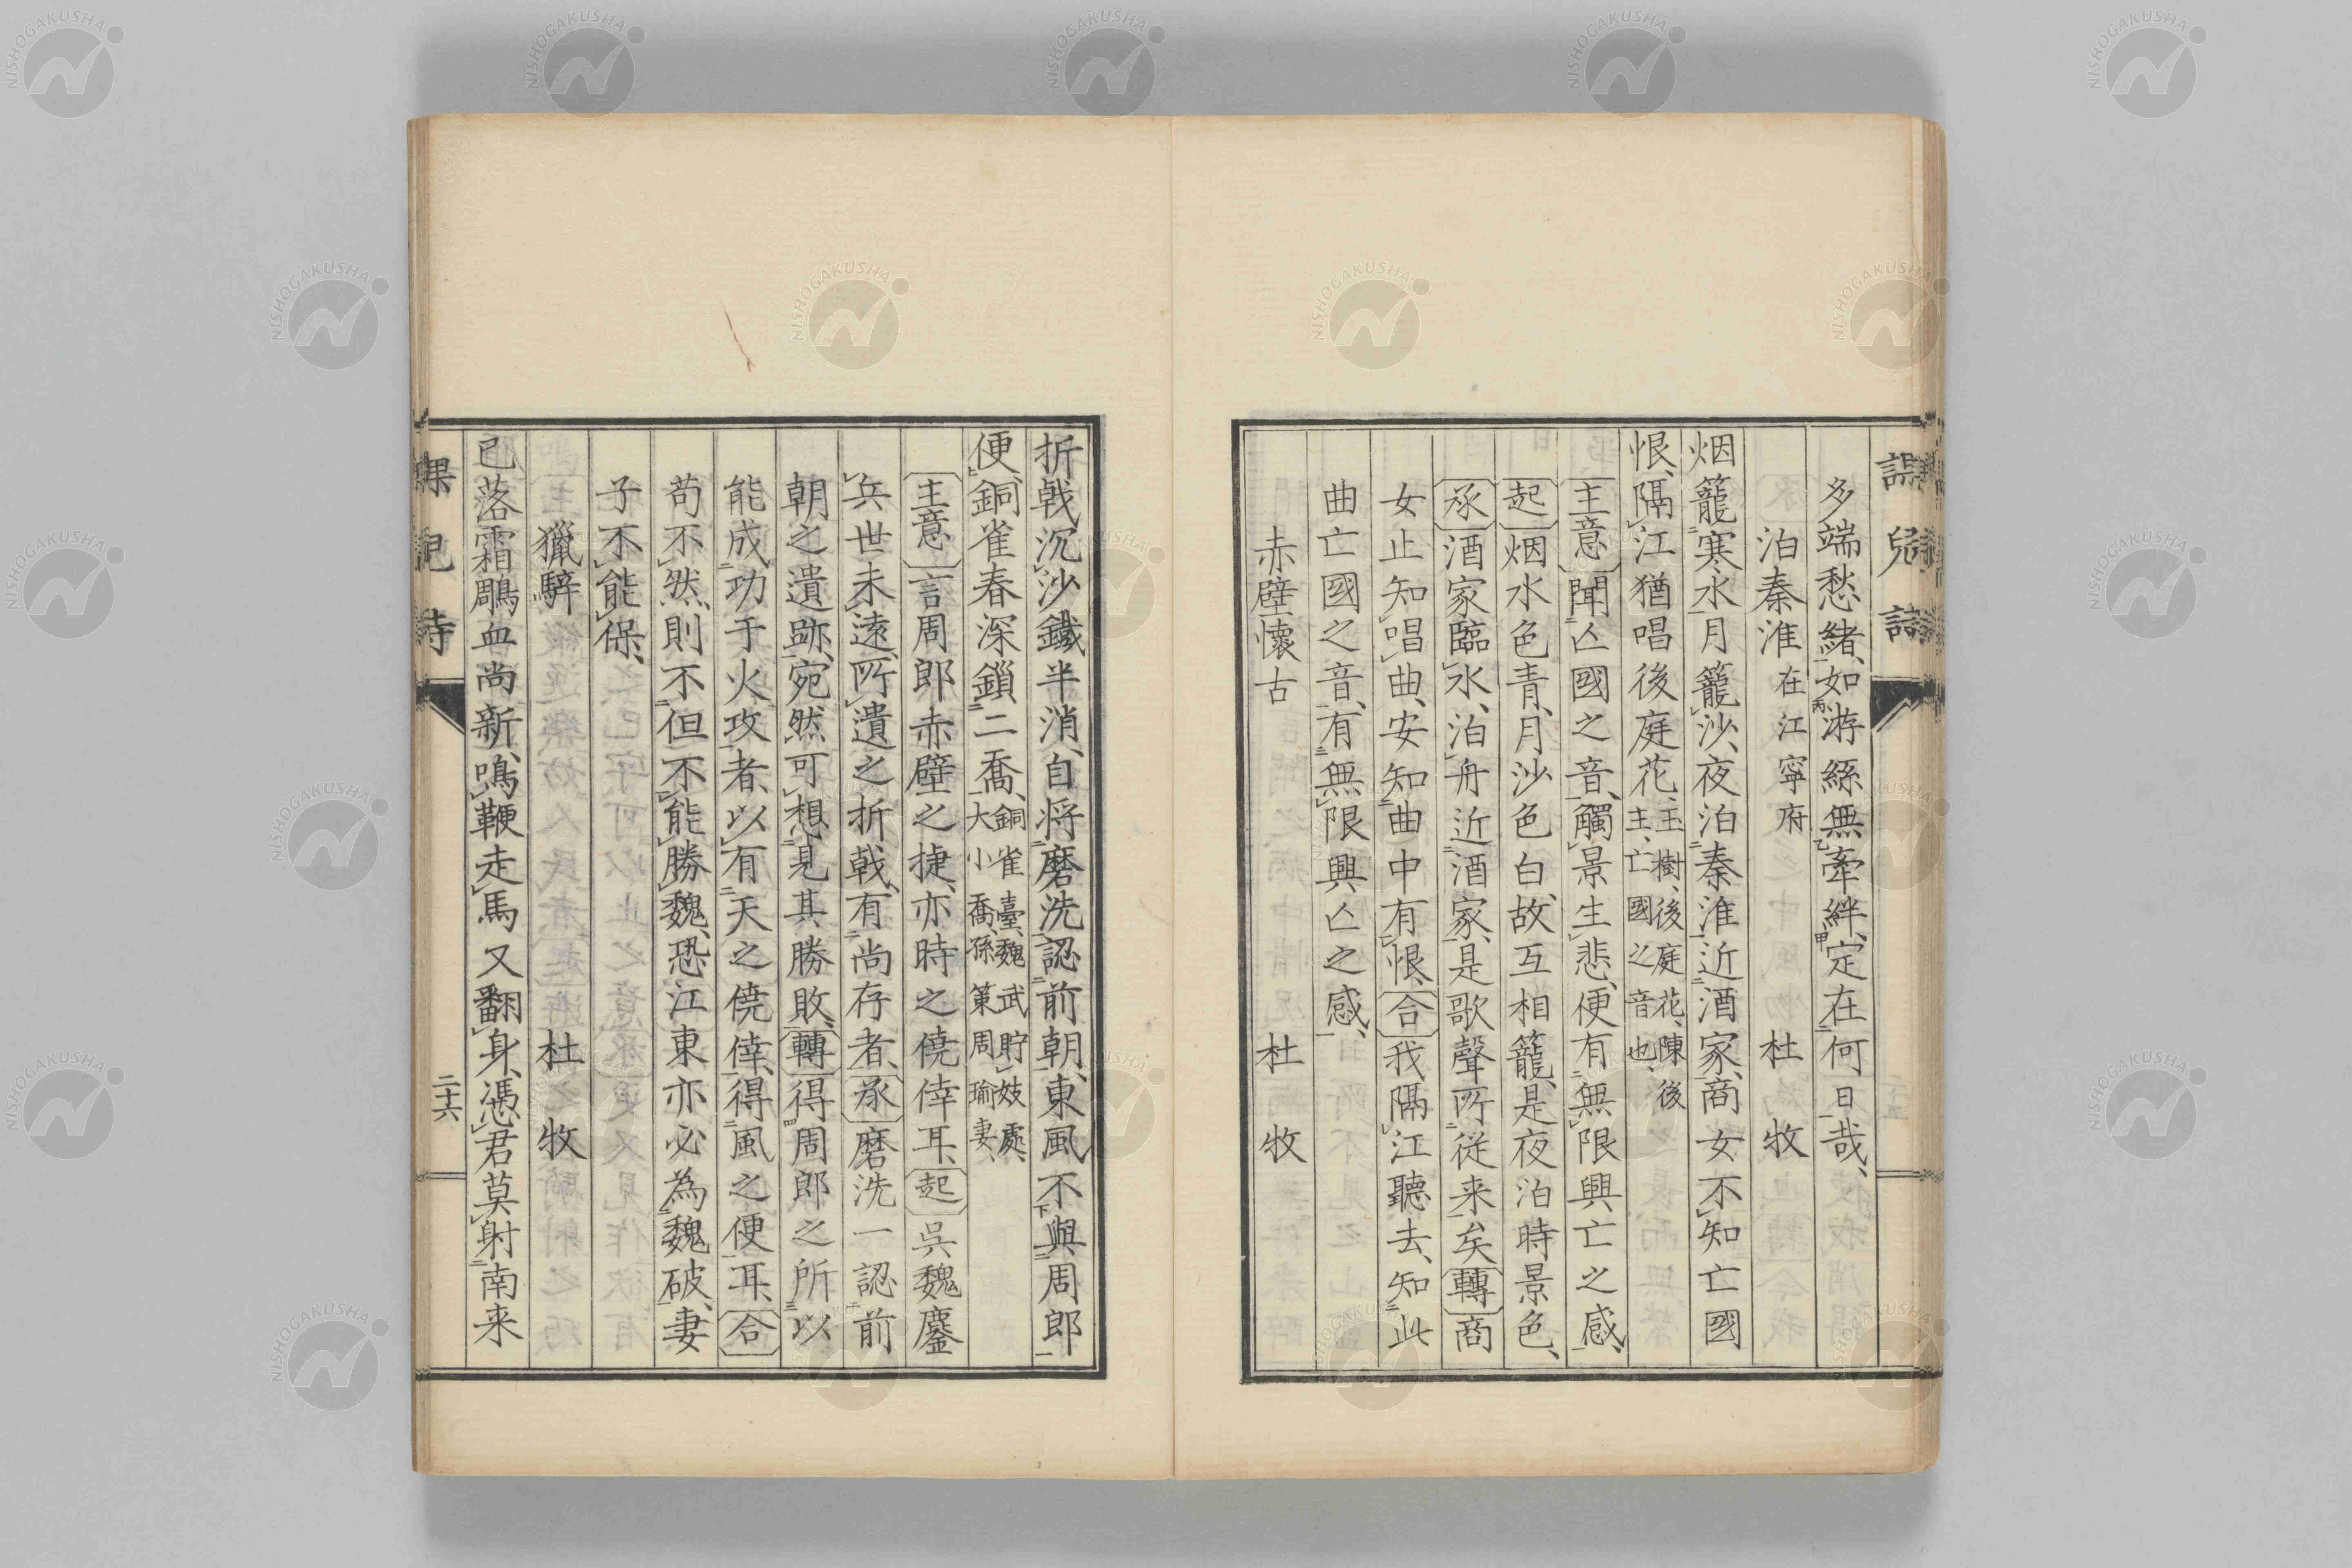 課兒詩
多端愁緒、如游絲無牽絆、定在何日哉、
泊秦淮 在江寧府 杜牧
烟籠寒水月籠沙、夜泊秦淮近酒家、商女不知亡國
恨、隔江猶唱後庭花、玉樹、後庭花、陳後主、亡國之音也、
主意 聞亡國之音、觸景生悲、便有無限興亡之感、
起 烟水色青、月沙色白、故互相籠、是夜泊時景色、
承 酒家臨水、泊舟近酒家、是歌聲所従来矣 轉 商
女止知唱曲、安知曲中有恨、合 我隔江聽去、知此
曲亡國之音、有無限興亡之感、
赤壁懷古 杜牧
折戟沉沙鐵半消、自将磨洗認前朝、東風不與周郎
便、銅雀春深鎖二喬、銅雀臺、魏武貯妓處、大小喬、孫策周瑜妻、
主意 言周郎赤壁之捷、亦時之僥倖耳、起 吳魏鏖
兵世未遠、所遺之折戟、有尚存者、承 磨洗一認前
朝之遺跡、宛然可想見其勝敗、轉 得周郎之所以
能成功于火攻者、以有天之僥倖、得風之便耳、合
苟不然、則不但不能勝魏、恐江東亦必為魏破、妻
子不能保、
獵騂 杜牧
已落霜鵰血尚新、鳴鞭走馬又翻身、憑君莫射南来
課兒詩
二十六